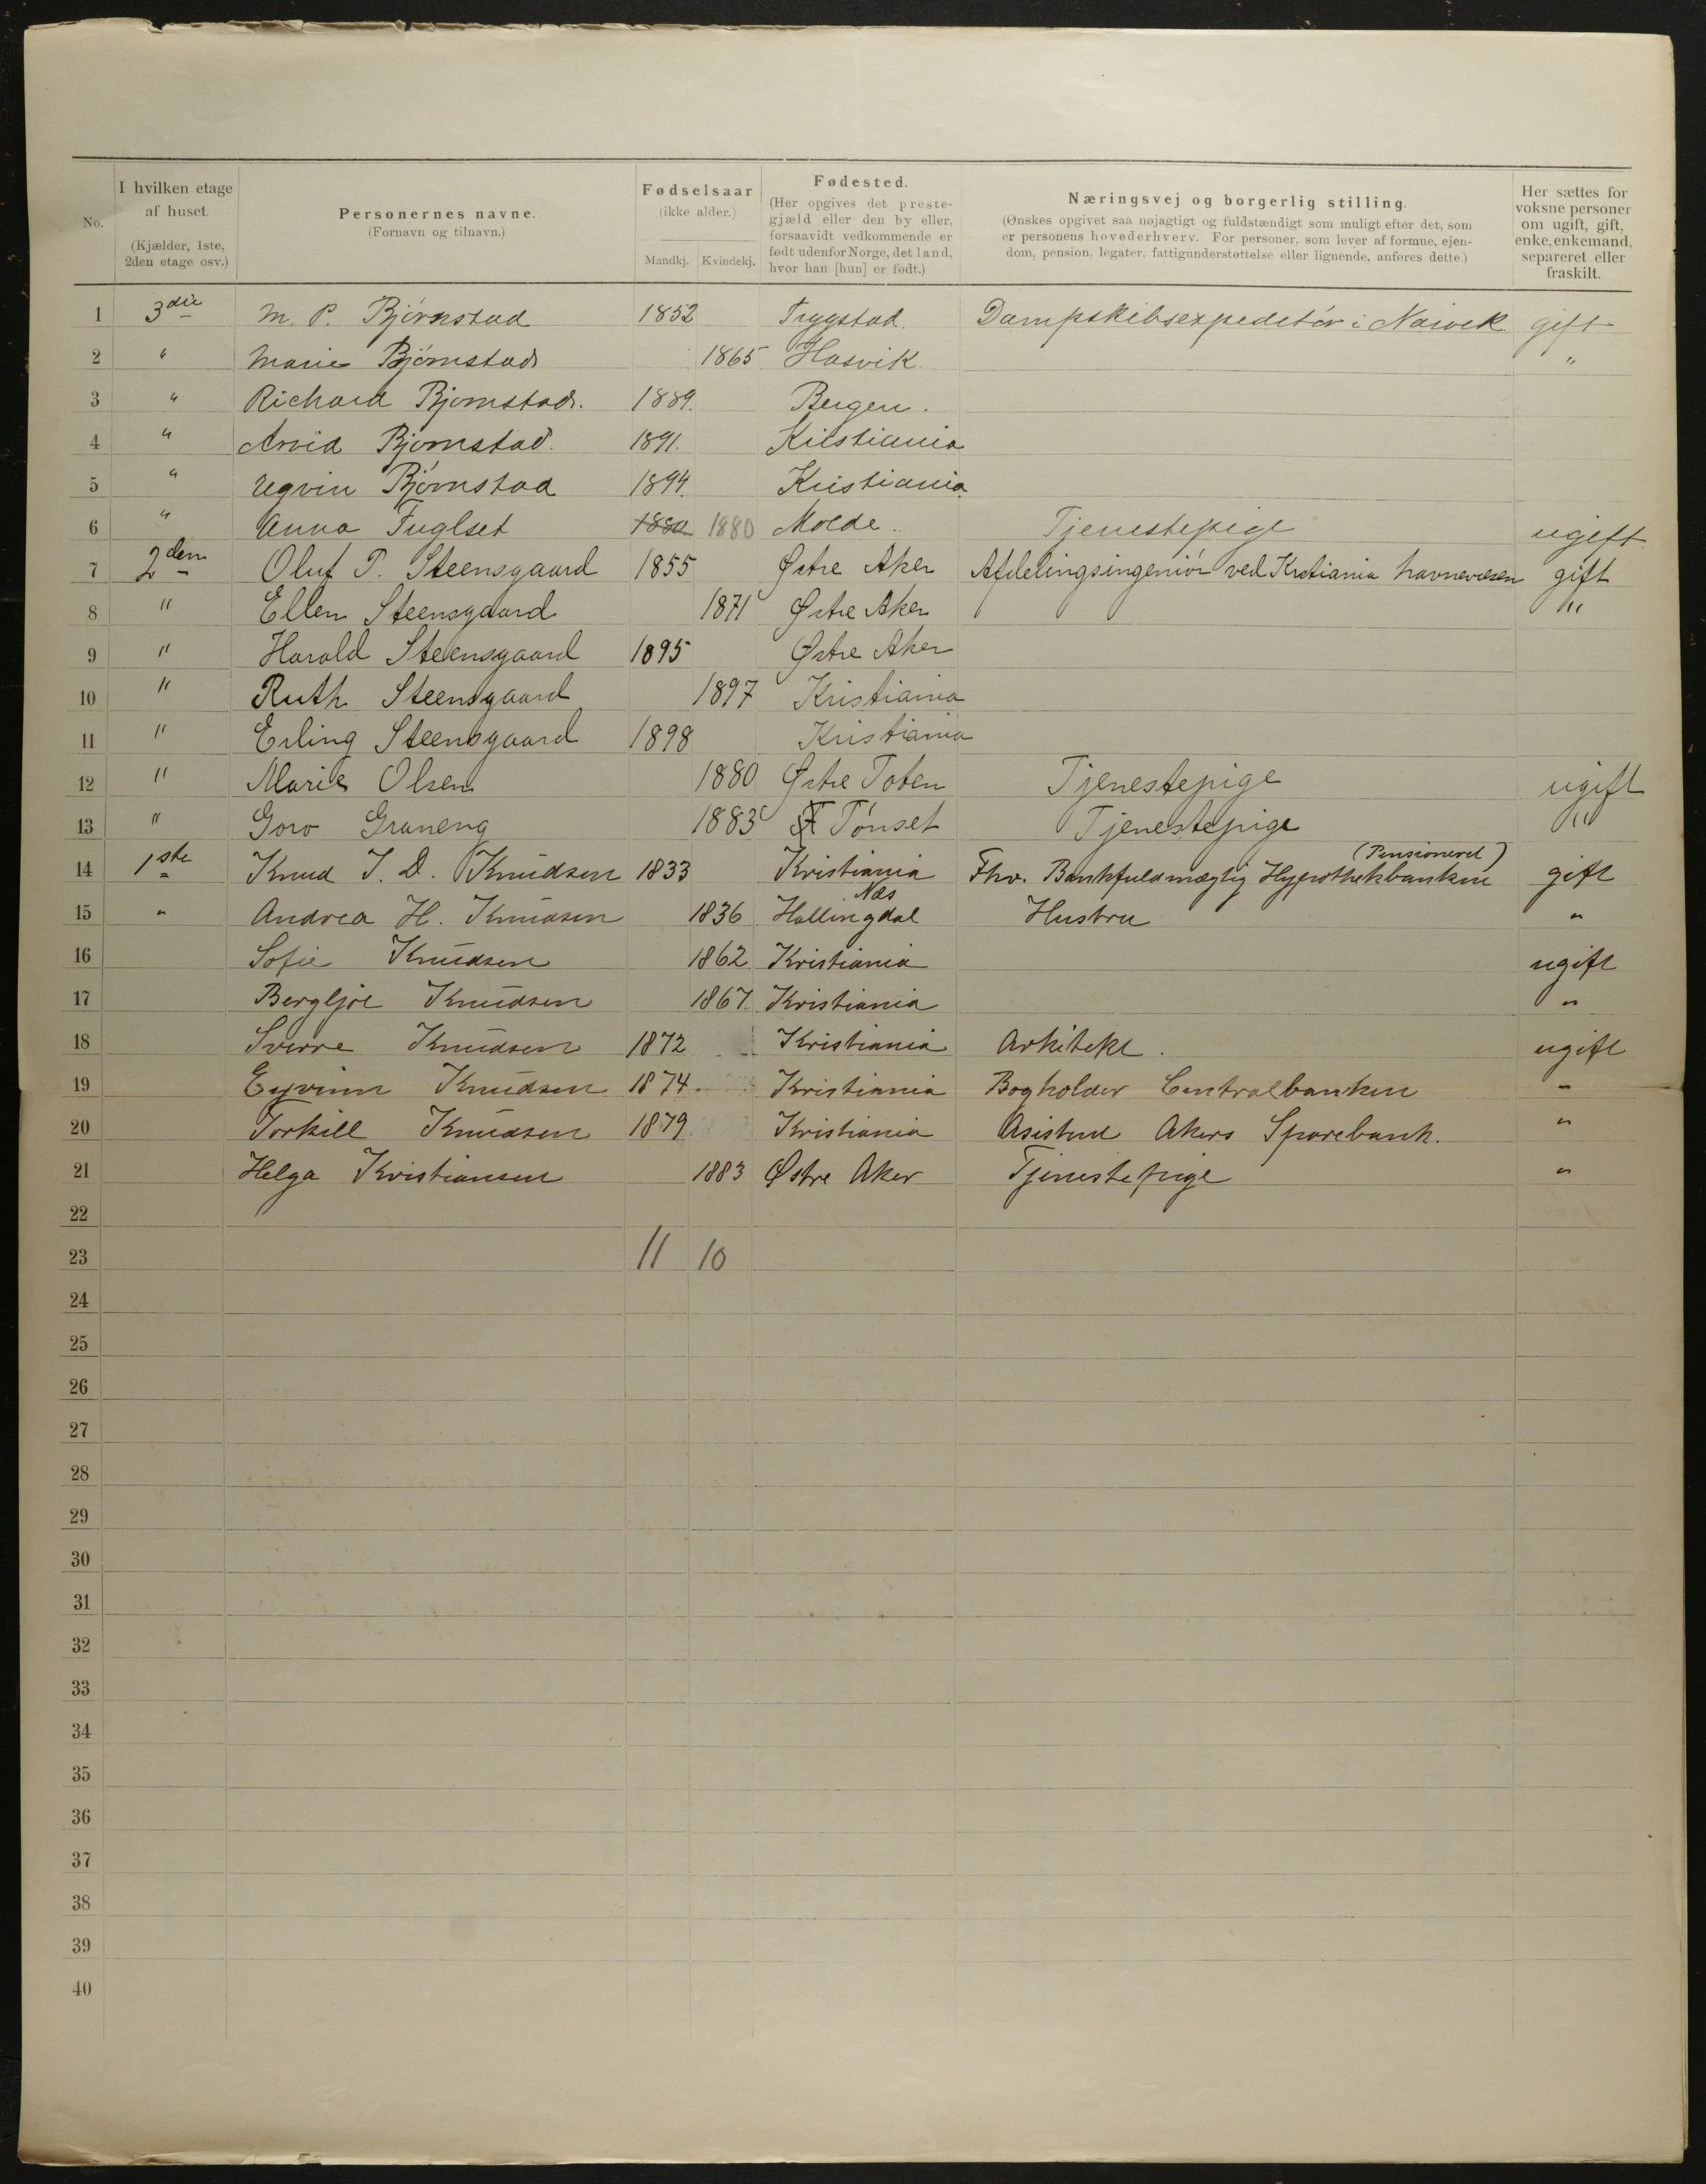 No.
I hvilken etage af huset. (Kjælder, 1ste, 2den etage osv.)
Personernes navne. (Fornavn og tilnavn.)
Fødselsaar (ikke alder.) Mandkj. Kvindekj.
Fødested. (Her opgives det prestegjæld eller den by eller, forsaavidt vedkommende er født udenfor Norge, det land, hvor han [hun] er født.)
Næringsvej og borgerlig stilling. (Ønskes opgivet saa nøjagtigt og fuldstændigt som muligt efter det, som er personens hovederhverv. For personer, som lever af formue, ejendom, pension, legater, fattigunderstøttelse eller lignende, anføres dette.)
Her sættes for voksne personer om ugift, gift, enke, enkemand, separeret eller fraskilt.
1 3die M. P. Bjørnstad 1852 Trygstad. Dampskibsexpeditør i Narvik gift
2 " Marie Bjørnstad 1865 Hasvik. "
3 " Richard Bjørnstad. 1889. Bergen.
4 " Arvid Bjørnstad. 1891. Kristiania
5 " Bjørnstad 1894. Kristiania
6 " Anna Fuglset 1880 1880 Molde. Tjenestepige ugift
7 2den Oluf P. Steensgaard 1855 Østre Aker Afdelingsingeniør ved Krstiania havnevæsen gift
8 " Ellen Steensgaard 1871 Østre Aker "
9 " Harald Steensgaard 1895 Østre Aker
10 " Ruth Steensgaard 1897 Kristiania
11 " Erling Steensgaard 1898 Kristiania
12 " Marie Olsen 1880 Østre Toten Tjenestepige ugift
13 " Goro Graneng 1883 Tønset Tjenestepige "
14 1ste Knud J. D. Knudsen 1833 Kristiania Fhv. Bankfuldmægtig Hypothekbanken (Pensioneret) gift
15 " Andrea H. Knudsen 1836 Næs Hallingdal Hustru "
16 Sofie Knudsen 1862 Kristiania ugift
17 Bergljot Knudsen 1867 Kristiania "
18 Sverre Knudsen 1872 Kristiania Arkitekt. ugift
19 Eyvinn Knudsen 1874 Kristiania Bogholder Centralbanken "
20 Torkill Knudsen 1879 Kristiania Asistent Akers Sparebank. "
21 Helga Kristiansen 1883 Østre Aker Tjenestepige "
22
23 11 10
24
25
26
27
28
29
30
31
32
33
34
35
36
37
38
39
40